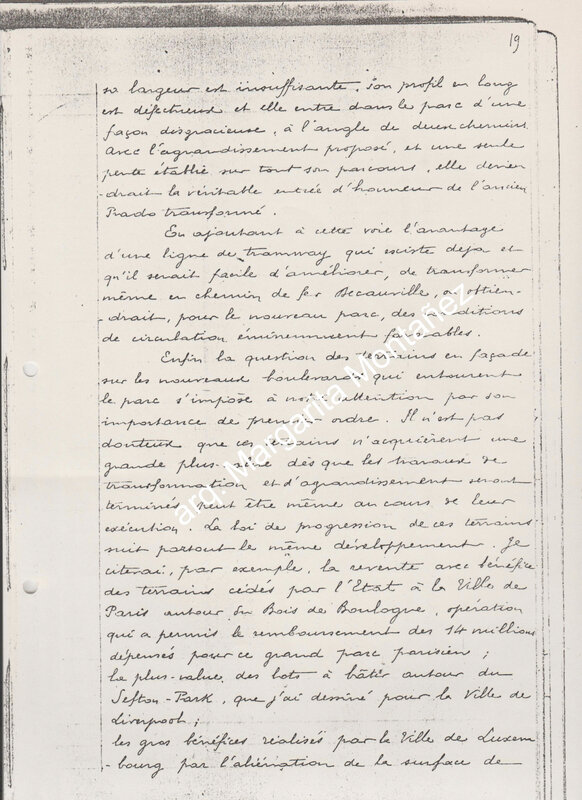 19
sa largeur est insuffisante, son profil en long
est défectueux et elle entre dans le parc d'une
façon disgracieuse, à l'angle de deux chemins.
Avec l'agrandissement proposé, et une seule
pente établie sur tout son parcours, elle devien
-drait la véritable entrée d'honneur de l'ancien
Prado transformé.
En ajoutant à cette voie l'avantage
d'une ligne de tramway qui existe déjà et
qu'il serait facile d'améliorer, de transformer
même en chemin de fer Decauville, on obtien-
drait, pour le nouveau parc, des conditions
de circulation éminemment favorables.
Enfin la question des terrains en façade
sur les nouveaux boulevards qui entourent
le parc s'impose à notre attention par son
importance de premier ordre. Il n'est pas
douteux que ces terrains n'acquièrent une
grande plus-value dès que les travaux de
transformation et d'agrandissement seront
terminés, peut être même au cours de leur
exécution. La loi de progression de ces terrains
suit partout le même développement. Je
citerai, par exemple, la revente avec bénéfice
des terrains cédés par l'Etat à la Ville de
Paris autour du Bois de Boulogne, opération
qui a permis le remboursement des 14 millions
dépensés pour ce grand parc parisien;
la plus-value, des lots à bâtir autour du
Sefton-Park, que j'ai dessiné pour la Ville de
Liverpool;
les gros bénéfices réalisés par la Ville de Luxem
-bourg par l'aliénation de la surface de
arq. Margarita Montañez